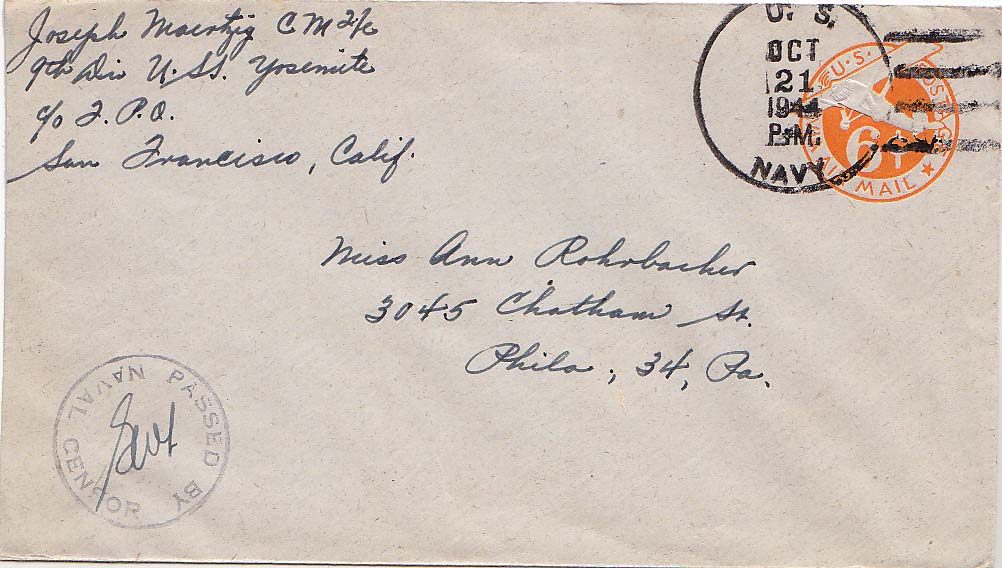 Joseph Maertzig C M 2/c
9th Div U.S.S. Yosemite
c/o F.P.O.
San Francisco, Calif.
U. S.
OCT
21
1944
P.M.
NAVY
U.S. POSTAGE
6¢
AIR MAIL
Miss Ann Rohrbacher
3045 Chatham St.
Phila, 34, Pa.
PASSED BY
NAVAL CENSOR